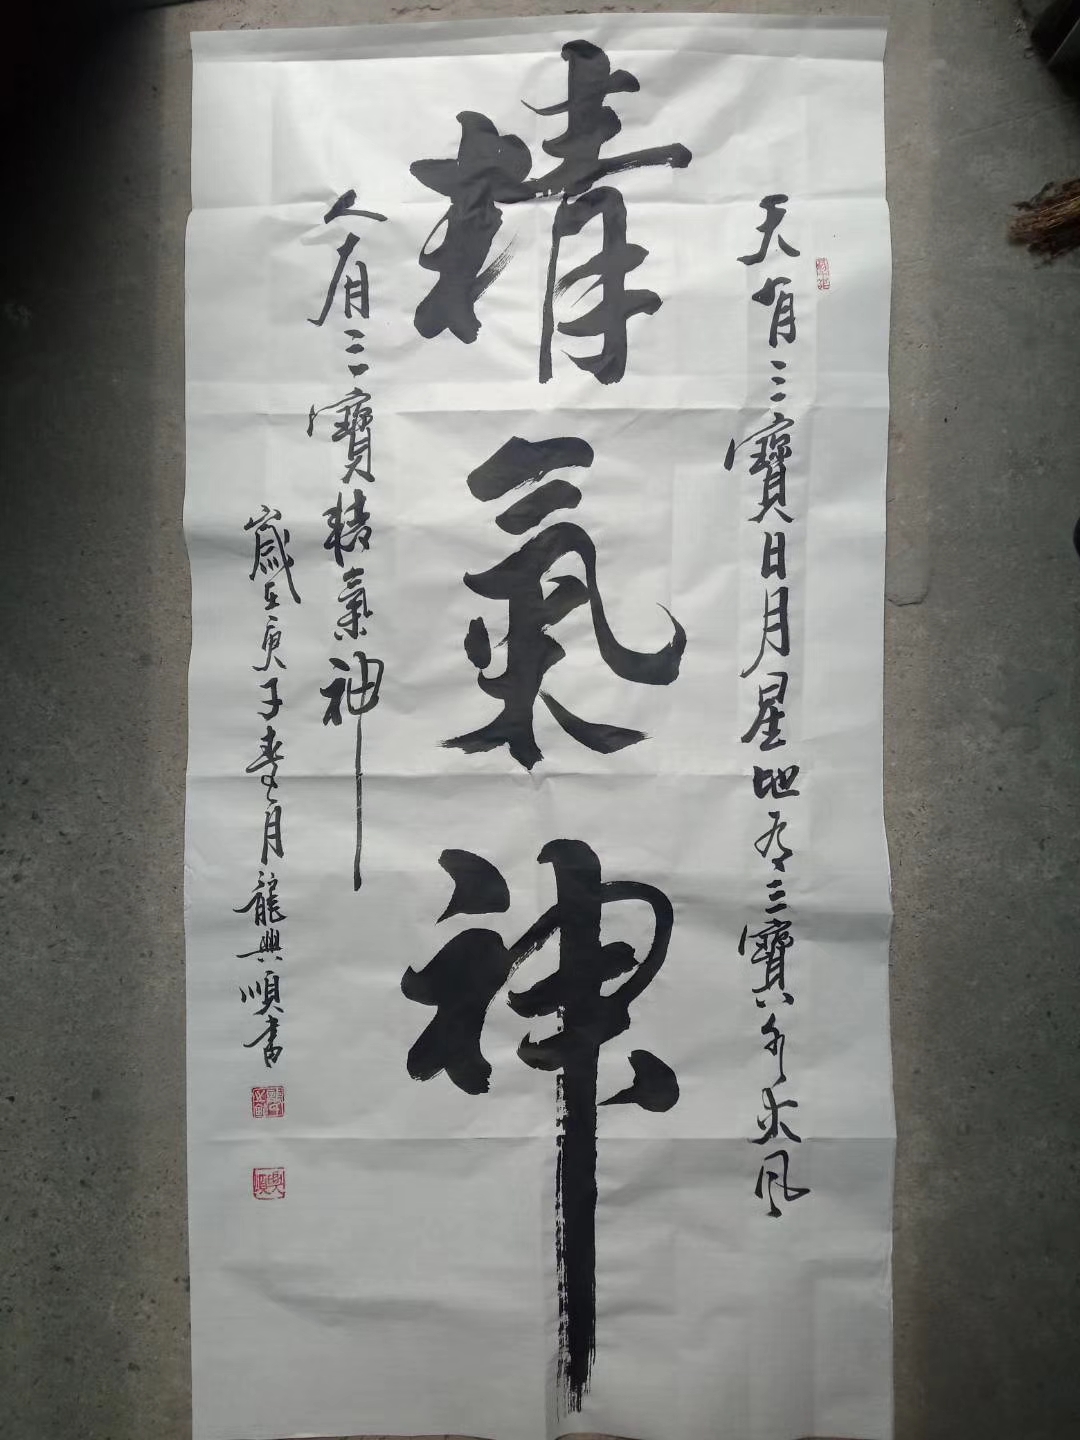 天有三寶日月星地有三寶水火風
精氣神
人有三寶精氣神
歲在庚子春月龍興順書
興順